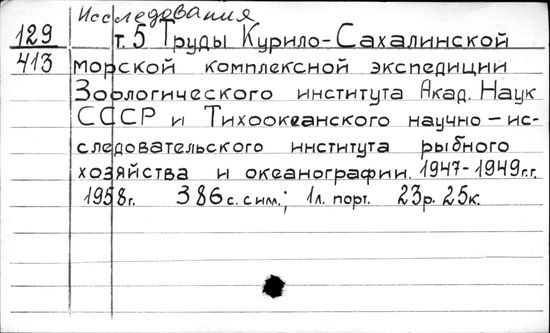 Исследования
129 т. 5 Труды Курило-Сахалинской
413 морской комплексной экспедиции
Зоологического института Акад. Наук
СССР и Тихоокеанского научно-ис-
следовательского института рыбного
хозяйства и океанографии. 1947-1949г.г.
1958г. 386 с. с илл.; 1л. порт. 23р. 25к.